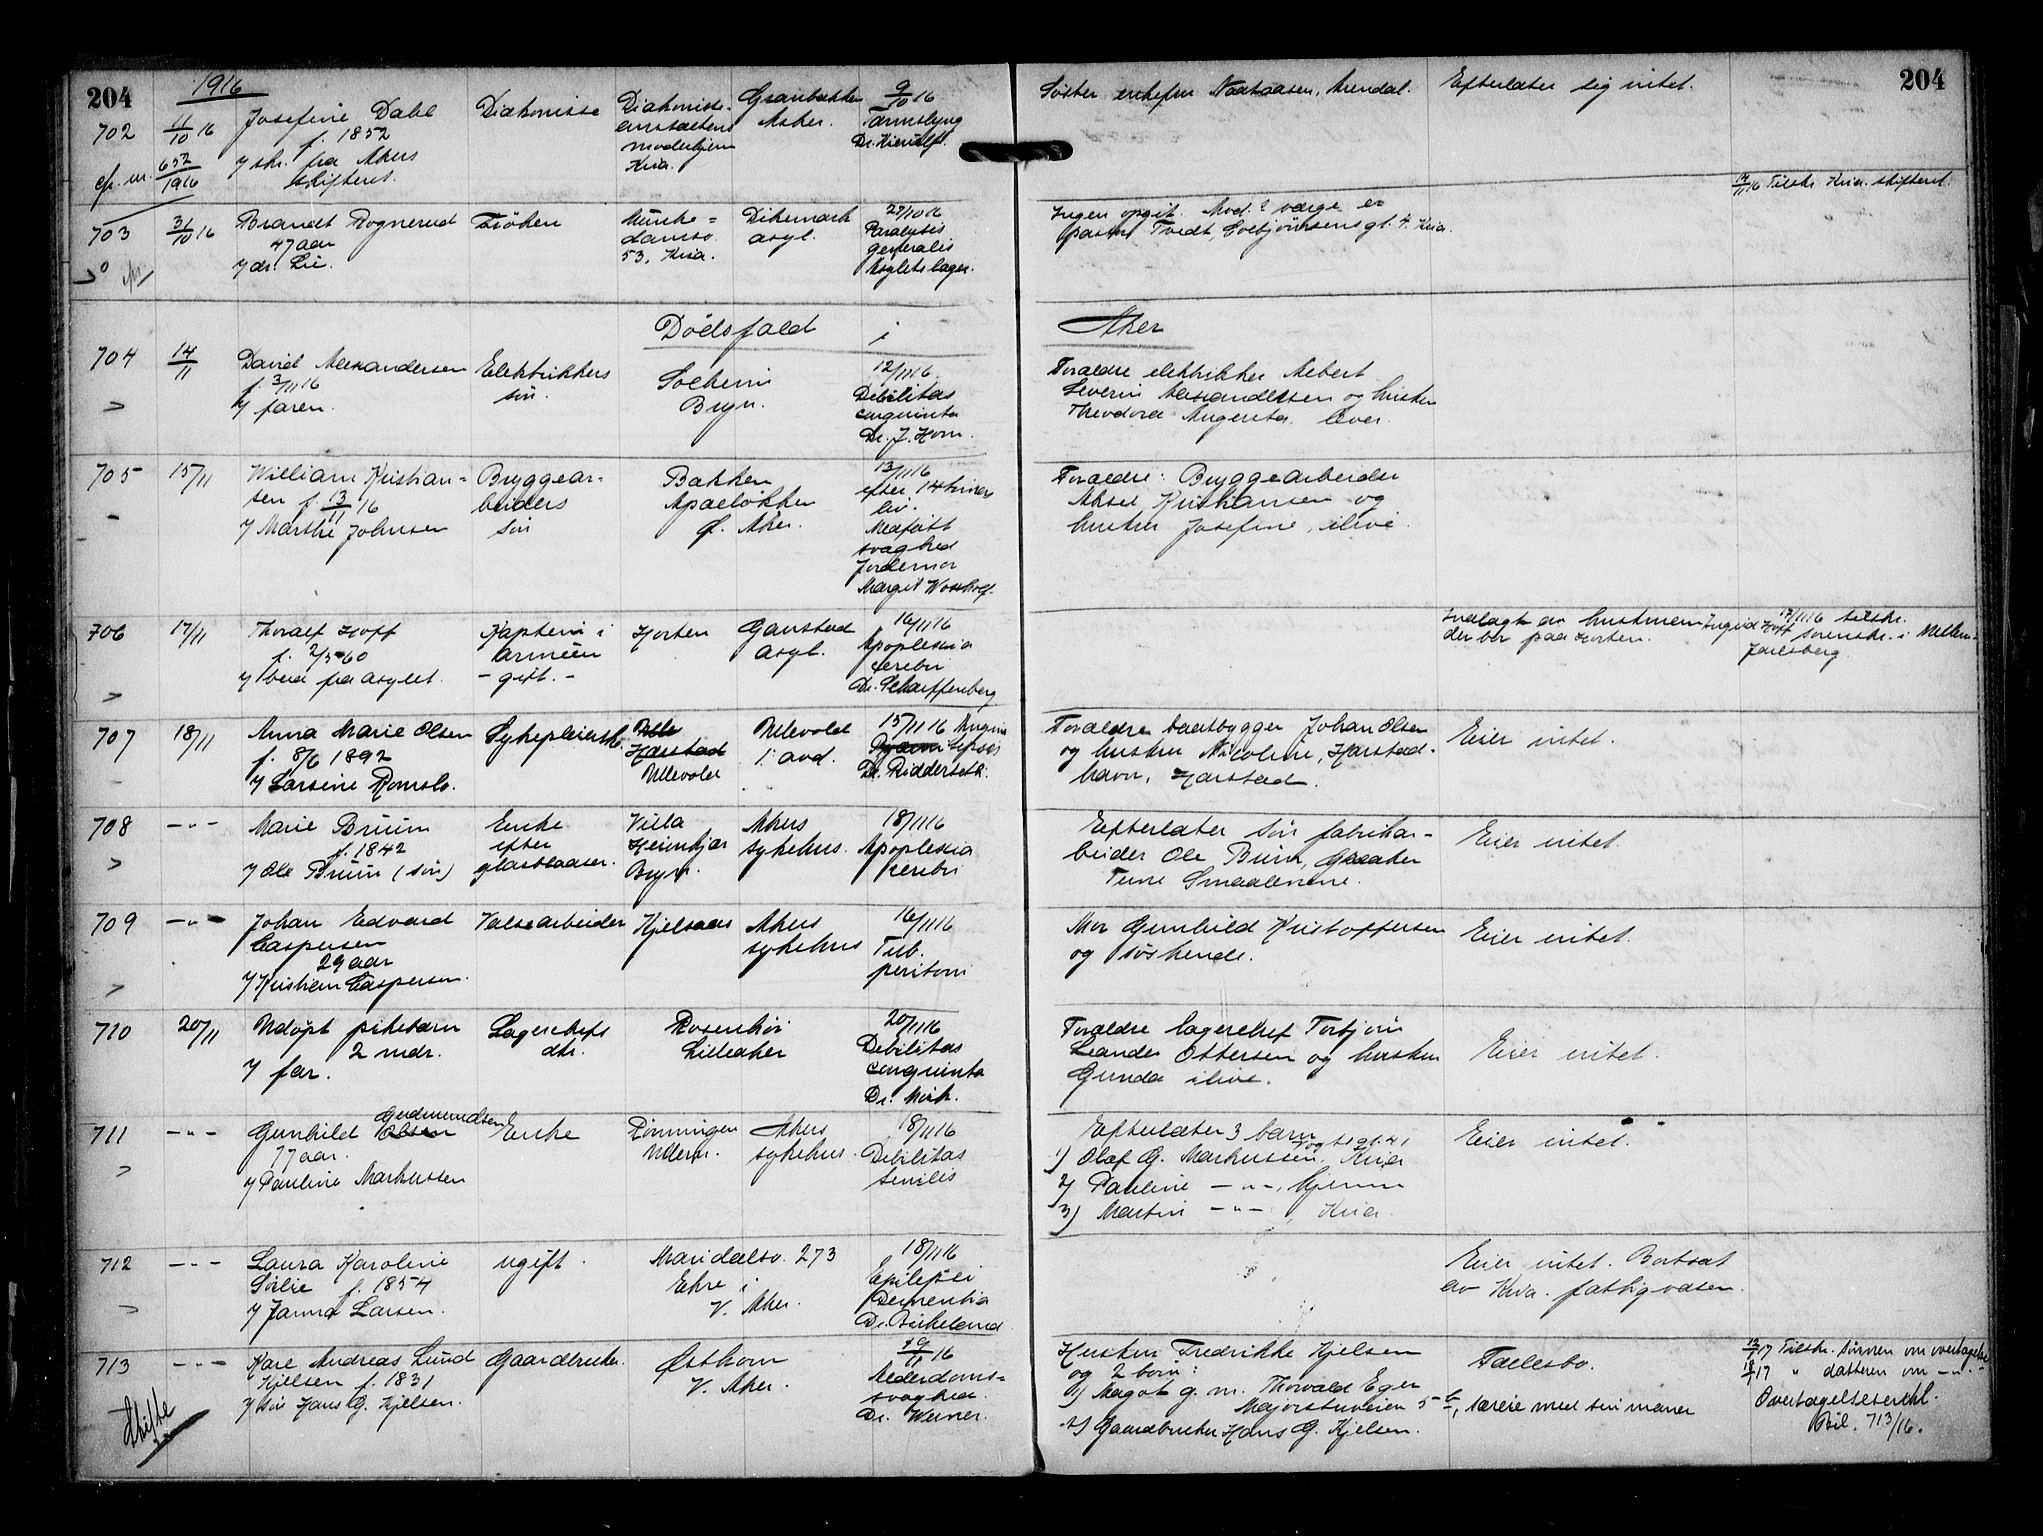 204
1916
204
702
11/10 16
Josefine Dahl
f. 1852
y skr. fra Akers
skifteret.
cfr. nr. 652/1916
Diakonisse
Diakonisse-
anstaltens
moderhjem
Kria.
Granbakken
Asker.
9/10 16
Tarmslyng
Dr. Kierulf.
Søster enkefru Arendal.
Efterlater sig intet.
703
31/10 16
Brandt Rognerud
47 aar
y dr. Lie.
Frøken
Munke=
damsv.
53, Kria.
Dikemark
asyl.
27/10 16
Paralysis
generalis
Asylets læge.
Ingen opgit. Mod. ? værge er
pastor Tvedt, gt. 4. Kria.
14/11 16 Tilskr. Kria. skifteret.
Dødsfald i Aker
704
14/11
David Alexandersen
f. 3/11 16
y faren.
Elektrikkers
søn.
Solheim
Bryn.
12/11 16.
Debilitas
congenita
Dr. J. Horn.
Forældre elektrikker Albert
Severin Alexandersen og hustru
Theodora Augusta, lever.
705
15/11
William Kristian=
sen f. 13/11 16
y Marthe Johnsen
Bryggear-
beiders
søn
Bakken
Apalløkken
Ø. Aker.
13/11 16
efter 14 timers
liv.
Medfødt
svaghed
Jordemor
Margit
Forældre: Bryggearbeider
Aksel Kristiansen og
hustru Josefine, ilive.
706
17/11
Thoralf Hoff
f. 2/5 60
y bud fra asylet.
Kaptein i
armeen
- gift. -
Horten
Gaustad
asyl.
16/11 16
Apoplexia
cerebri
Dr. Scharffenberg
Indlagt av hustruen Ingrid Hoff
der bor paa Horten.
17/11 16 tilskr.
sorenskr. i Mellem-
Jarlsberg.
707
18/11
Anna Marie Olsen
f. 8/6 1892
y Larsine Romslo.
Sykepleierske.
Ulle
Harstad
Ullevold
Ullevold
1. avd.
15/11 16 Angina
sepsis
Dr. Ridderstr.
Forældre baatbygger Johan Olsen
og hustru Nicoline, Harstad-
havn, Harstad.
Eier intet.
708
- " -
Marie Bruun
f. 1842
y Ole Bruun (søn)
Enke
efter
glasblaaser.
Villa
Heimkjær
Bryn.
Akers
sykehus.
18/11 16
Apoplexia
cerebri
Efterlater søn fabrikar-
beider Ole Bruun, Graater
Tune Smaalenene.
Eier intet.
709
- " -
Johan Edvard
Caspersen
29 aar
y Kristian Caspersen.
Valsearbeider
Kjelsaas
Akers
sykehus
16/11 16
Tub.
peritoni
Mor Gunhild Kristoffersen
og søskende.
Eier intet.
710
20/11
Udøpt pikebarn
2 mdr.
y far.
Lagerchefs
dtr.
Rosenhøi
Lilleaker
20/11 16
Debilitas
congenita
Dr. Mirk.
Forældre lagerchef Torbjørn
Leander Ottersen og hustru
Gunda ilive.
Eier intet.
711
- " -
Gunhild Olsen Gudmundsen
77 aar.
y Pauline Markussen
Enke
Rønningen
Ullern.
Akers
sykehus.
18/11 16
Debilitas
senilis
Efterlater 3 barn
1) Olaf G. Markussen, Vogtsgt. 41 Kria
2) Pauline - " -, hjemme
3) Martin - " -, Kria.
Eier intet.
712
- " -
Laura Karoline
Sørlie f. 1854
y Janna Larsen.
ugift.
Maridalsv. 273
Ekre i
V. Aker.
18/11 16
Epilepsi
Dementia
Dr. Birkeland
Eier intet. Bortsat
av Kria. fattigvæsen.
713
- " -
Karl Andreas Lund
Kjelsen f. 1831
y søn Hans G. Kjelsen.
Skifte
Gaardbruker.
Østhorn
V. Aker.
19/11 16
Alderdoms=
svaghed.
Dr. Werner.
Hustru Fredrikke Kjelsen
og 2 børn:
1) Magot g. m. Thorvald Eger
Majorstuveien 5 b, særeie med sin mann
2) Gaardbruker Hans G. Kjelsen.
Fællesbo.
12/1 17 Tilskr. sønnen om overtagelse
18/1 17 " datteren om - " -
Overtagelseserkl.
Bil. 713/16.